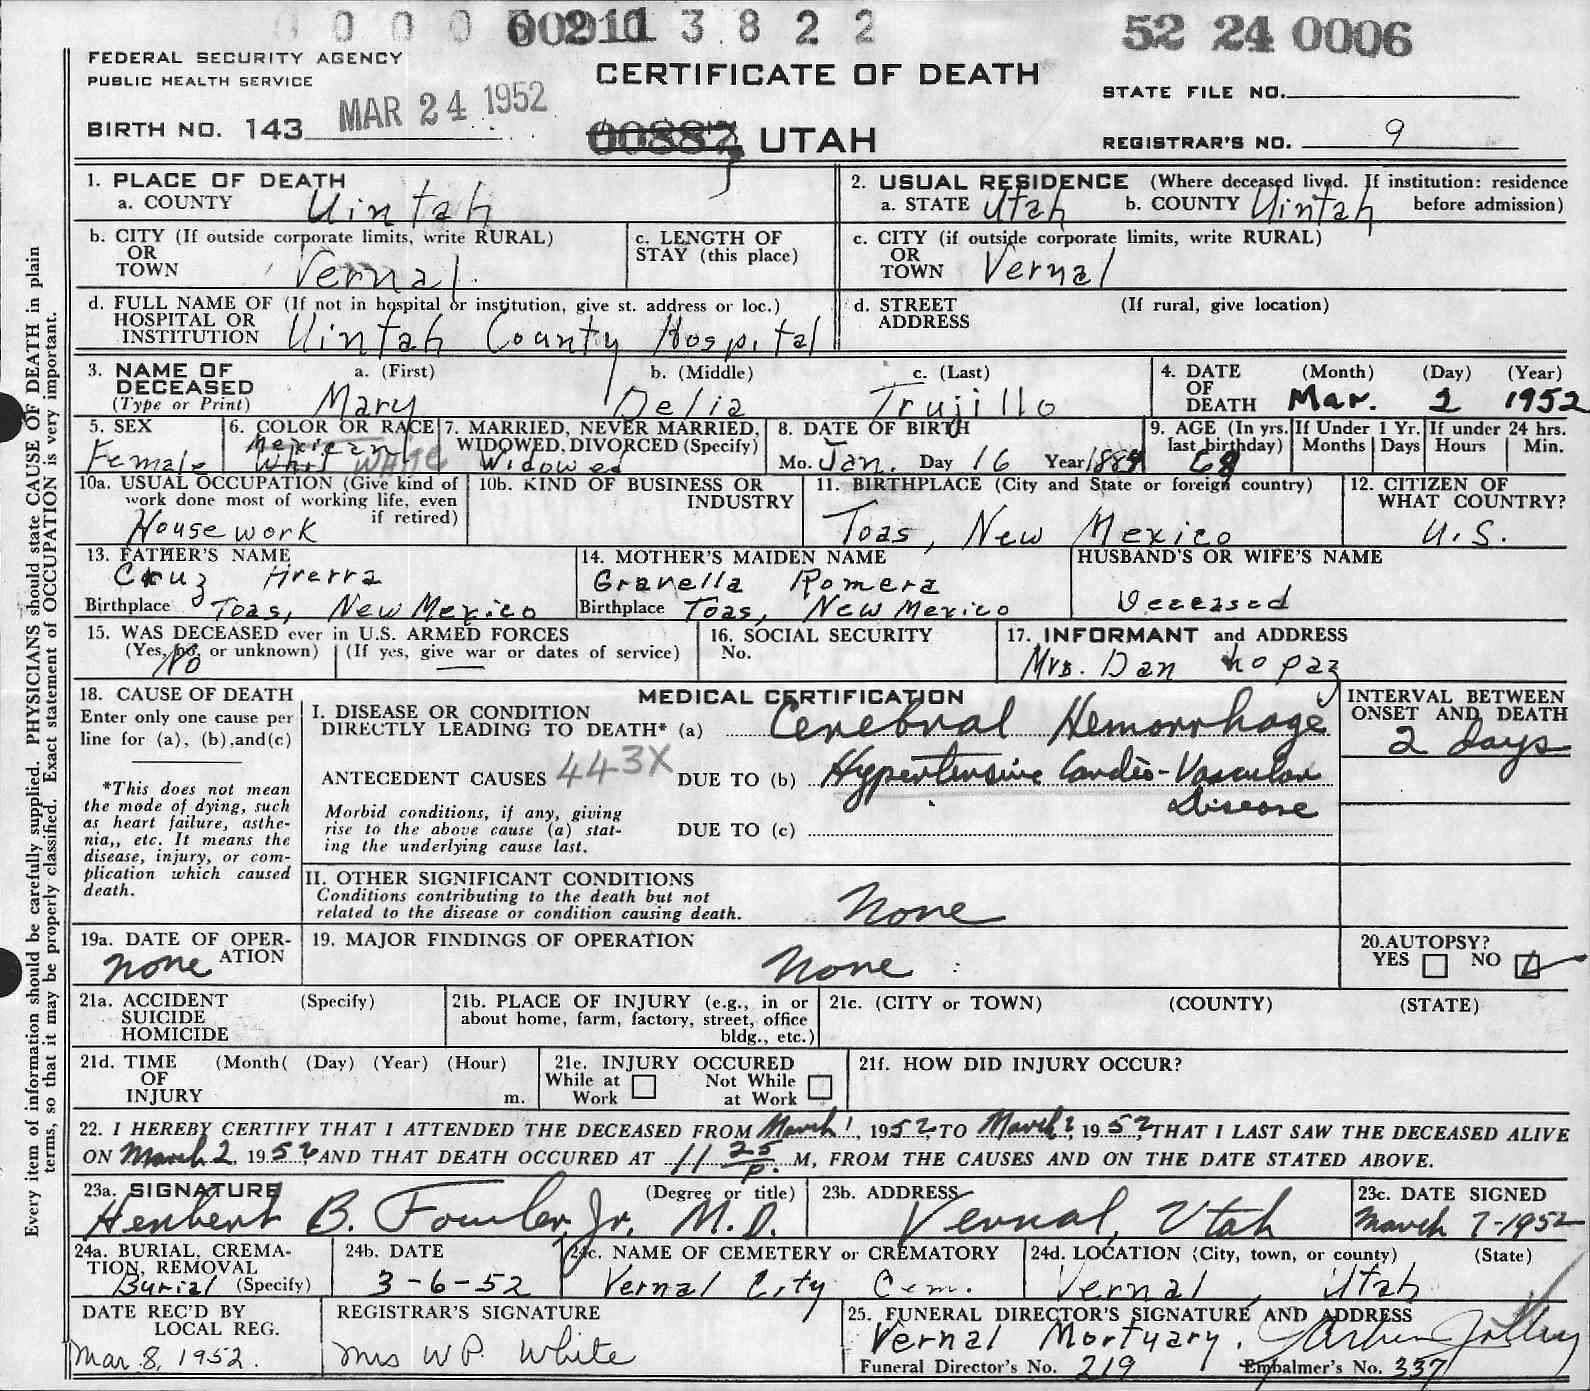 0 0 0 0 3 8 2 2
52 24 0006
FEDERAL SECURITY AGENCY
PUBLIC HEALTH SERVICE
MAR 24 1952
BIRTH NO. 143
CERTIFICATE OF DEATH
00887 UTAH
STATE FILE NO.
REGISTRAR'S NO. 9
1. PLACE OF DEATH
a. COUNTY Uintah
2. USUAL RESIDENCE (Where deceased lived. If institution: residence
a. STATE Utah b. COUNTY Uintah before admission)
b. CITY (If outside corporate limits, write RURAL)
OR
TOWN Vernal
c. LENGTH OF
STAY (this place)
c. CITY (if outside corporate limits, write RURAL)
OR
TOWN Vernal
d. FULL NAME OF (If not in hospital or institution, give st. address or loc.)
HOSPITAL OR
INSTITUTION Uintah County Hospital
d. STREET (If rural, give location)
ADDRESS
3. NAME OF a. (First) b. (Middle) c. (Last)
DECEASED
(Type or Print) Mary Delia Trujillo
4. DATE (Month) (Day) (Year)
OF
DEATH Mar. 2 1952
5. SEX
Female
6. COLOR OR RACE
Mexican
White WHITE
7. MARRIED, NEVER MARRIED,
WIDOWED, DIVORCED (Specify)
Widowed
8. DATE OF BIRTH
Mo. Jan. Day 16 Year 1884
9. AGE (In yrs. last birthday) 68
If Under 1 Yr. Months Days
If under 24 hrs. Hours Min.
10a. USUAL OCCUPATION (Give kind of
work done most of working life, even
if retired)
House work
10b. KIND OF BUSINESS OR
INDUSTRY
11. BIRTHPLACE (City and State or foreign country)
Toas, New Mexico
12. CITIZEN OF
WHAT COUNTRY?
U.S.
13. FATHER'S NAME
Cruz Arerra
Birthplace Toas, New Mexico
14. MOTHER'S MAIDEN NAME
Gravella Romera
Birthplace Toas, New Mexico
HUSBAND'S OR WIFE'S NAME
Deceased
15. WAS DECEASED ever in U.S. ARMED FORCES
(Yes, no, or unknown) (If yes, give war or dates of service)
No
16. SOCIAL SECURITY
No.
17. INFORMANT and ADDRESS
Mrs. Dan Lopaz
18. CAUSE OF DEATH
Enter only one cause per
line for (a), (b),and(c)
*This does not mean
the mode of dying, such
as heart failure, asthe-
nia,, etc. It means the
disease, injury, or com-
plication which caused
death.
MEDICAL CERTIFICATION
I. DISEASE OR CONDITION
DIRECTLY LEADING TO DEATH* (a) Cerebral Hemorrhage
ANTECEDENT CAUSES 443X DUE TO (b) Hypertensive Cardio-Vascular
Disease
Morbid conditions, if any, giving
rise to the above cause (a) stat-
ing the underlying cause last.
DUE TO (c)
INTERVAL BETWEEN
ONSET AND DEATH
2 days
II. OTHER SIGNIFICANT CONDITIONS
Conditions contributing to the death but not
related to the disease or condition causing death.
None
19a. DATE OF OPER-
ATION
none
19. MAJOR FINDINGS OF OPERATION
None
20.AUTOPSY?
YES NO
21a. ACCIDENT (Specify)
SUICIDE
HOMICIDE
21b. PLACE OF INJURY (e.g., in or
about home, farm, factory, street, office
bldg., etc.)
21c. (CITY or TOWN) (COUNTY) (STATE)
21d. TIME (Month( (Day) (Year) (Hour)
OF
INJURY m.
21e. INJURY OCCURED
While at Work Not While at Work
21f. HOW DID INJURY OCCUR?
22. I HEREBY CERTIFY THAT I ATTENDED THE DECEASED FROM March 1, 1952, TO March 2, 1952, THAT I LAST SAW THE DECEASED ALIVE
ON March 2, 1952, AND THAT DEATH OCCURED AT 11 25 P. M, FROM THE CAUSES AND ON THE DATE STATED ABOVE.
23a. SIGNATURE (Degree or title)
Herbert B. Fowler, Jr. M.D.
23b. ADDRESS
Vernal, Utah
23c. DATE SIGNED
March 7-1952
24a. BURIAL, CREMA-
TION, REMOVAL
Burial (Specify)
24b. DATE
3-6-52
24c. NAME OF CEMETERY or CREMATORY
Vernal City Cem.
24d. LOCATION (City, town, or county) (State)
Vernal, Utah
DATE REC'D BY
LOCAL REG.
Mar 8, 1952.
REGISTRAR'S SIGNATURE
Mrs W P. White
25. FUNERAL DIRECTOR'S SIGNATURE AND ADDRESS
Vernal Mortuary.
Funeral Director's No. 219 Embalmer's No. 337
Every item of information should be carefully supplied. PHYSICIANS should state CAUSE OF DEATH in plain
terms, so that it may be properly classified. Exact statement of OCCUPATION is very important.